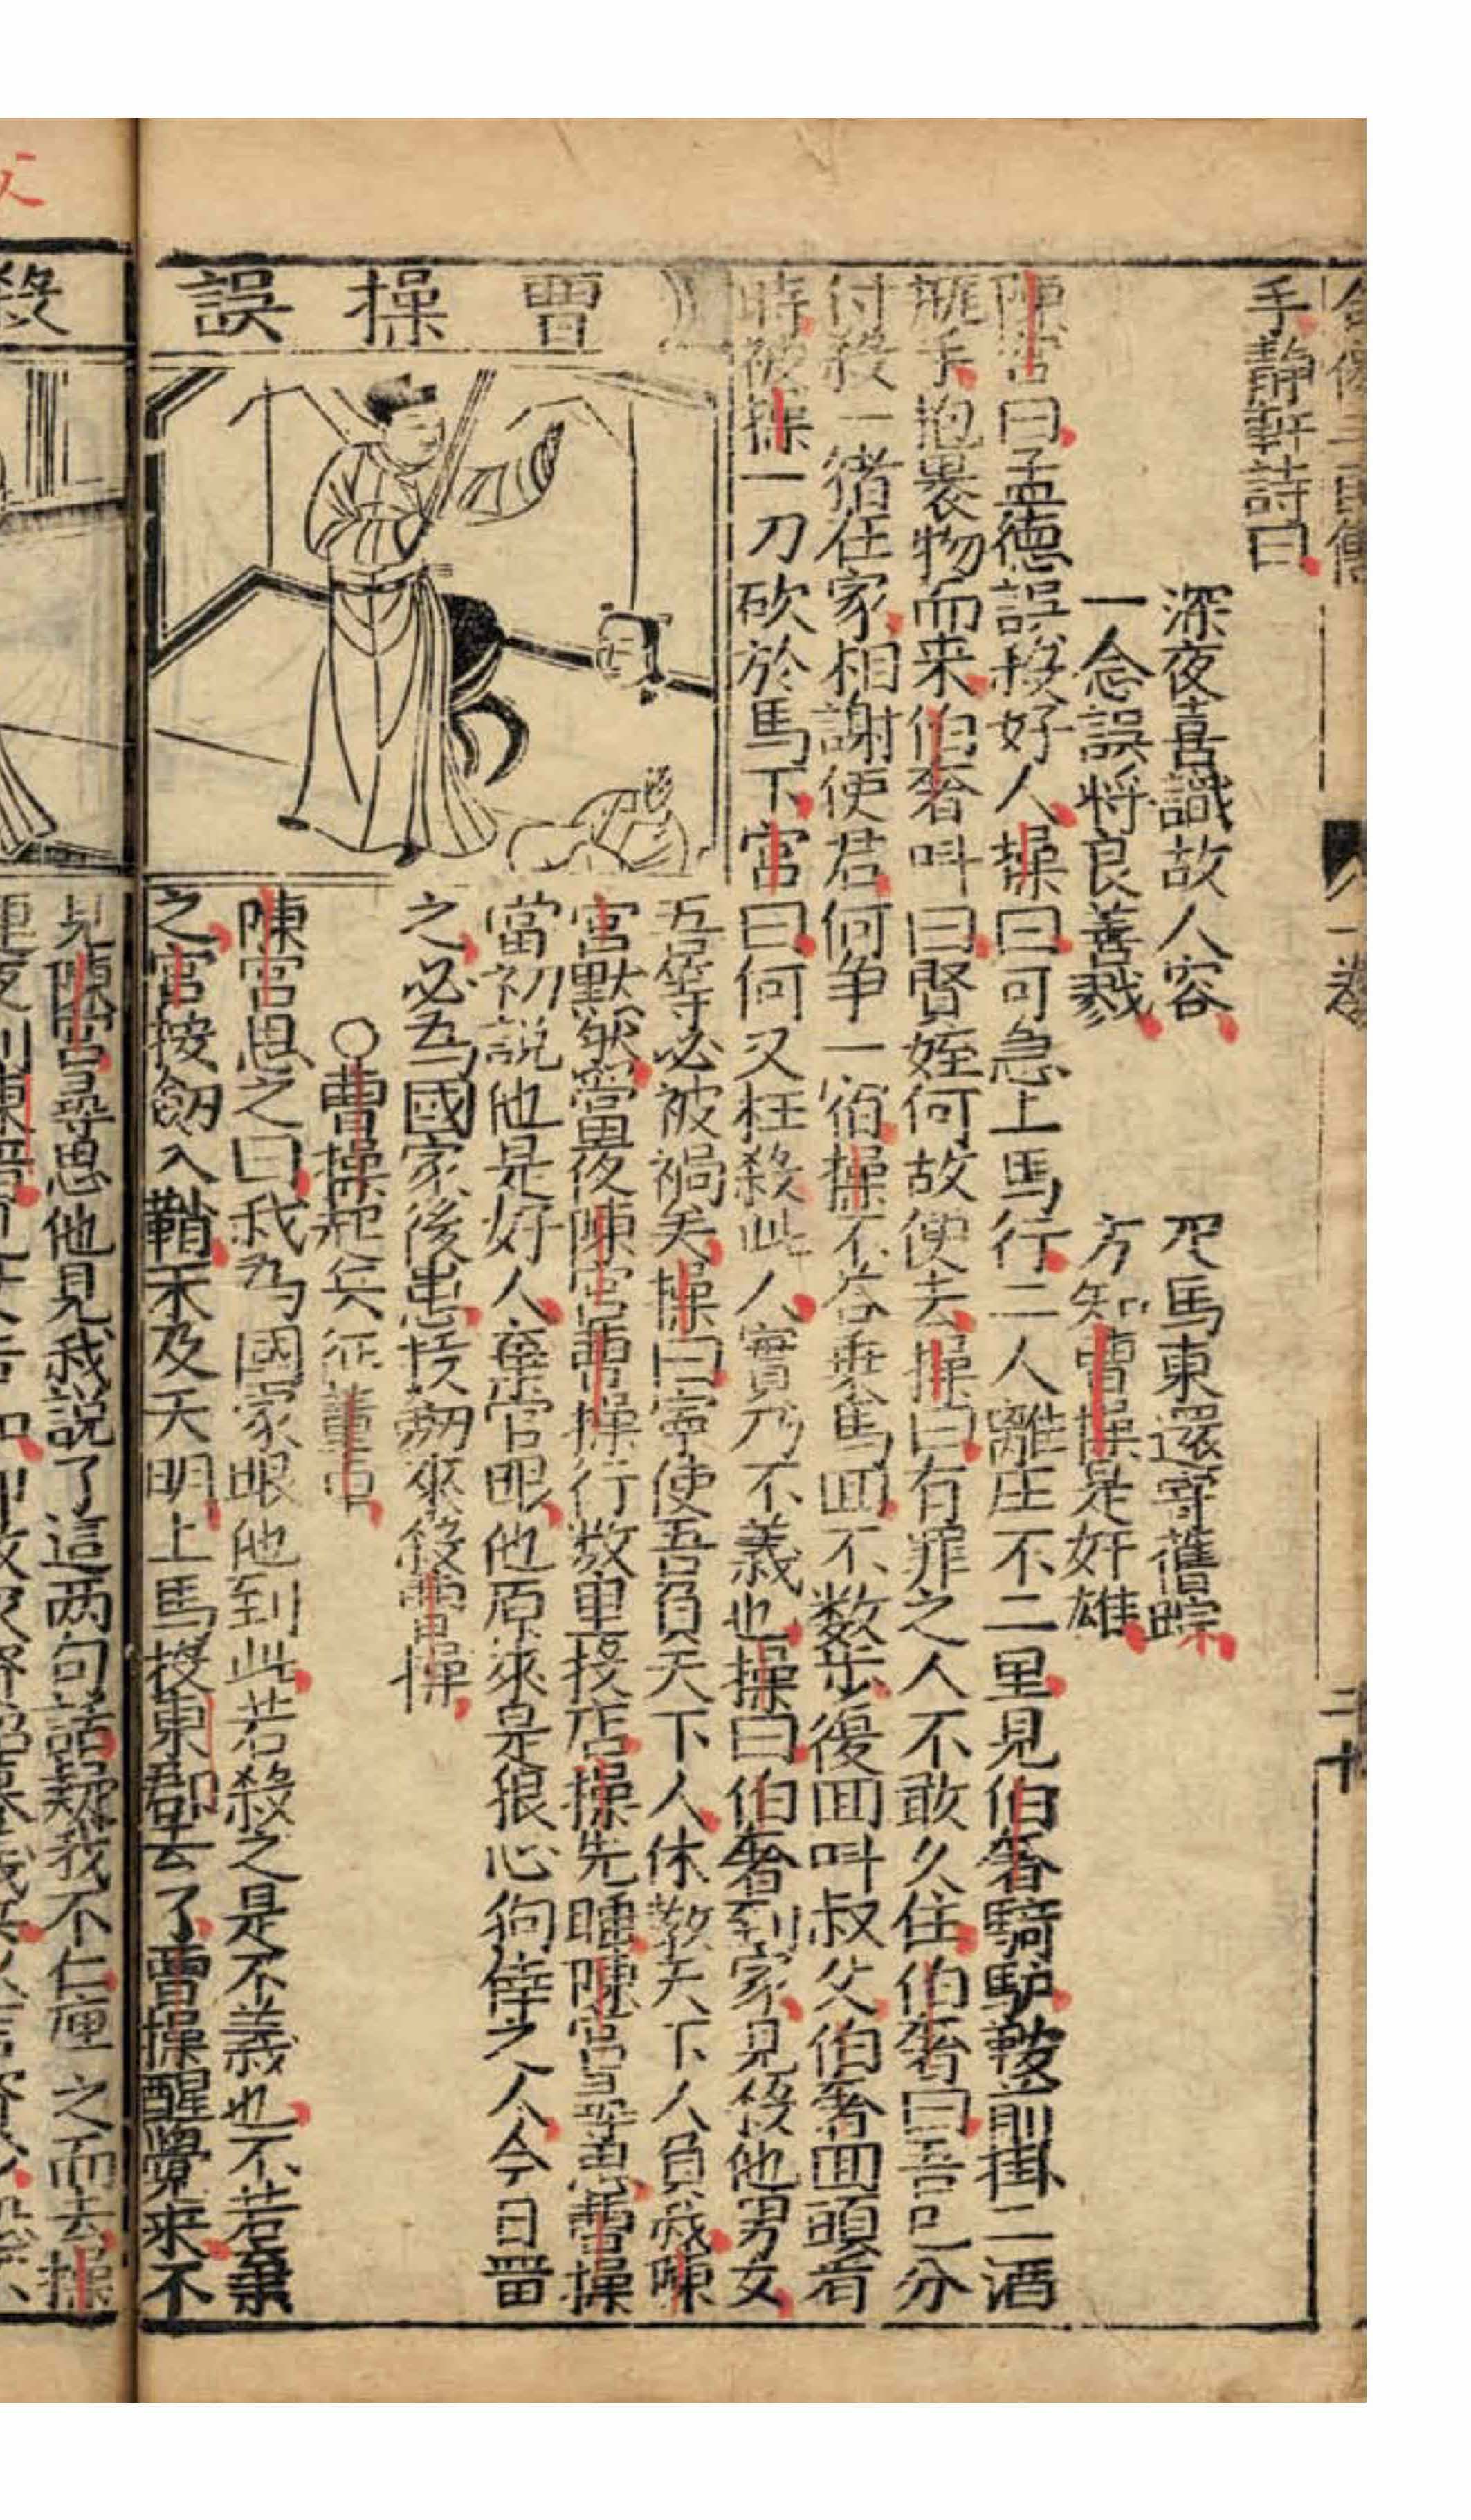 手靜軒詩曰
深夜喜識故人容　匹馬東還寄舊踪
一念誤將良善戮　方知曹操是奸雄
陳宮曰孟德誤殺好人操曰可急上馬行二人離庄不二里見伯奢騎馿鞍前掛二酒
瓶手抱裹物而来伯奢叫曰賢姪何故便去操曰有罪之人不敢久住伯奢曰吾已分
付殺一猪在家相謝使君何争一宿操不答乗馬囬不数步復囬叫叔父伯奢囬頭看
時被操一刀砍於馬下宮曰何又枉殺此人實乃不義也操曰伯奢到家見殺他男女
曹操誤
吾等必被禍矣操曰寧使吾負天下人休教天下人負我陳
宮默然當夜陳宮曹操行数里投店操先睡陳宮尋思曹操
當初説他是好人棄官跟他原來是狠心狗倖之人今日畱
之必為國家後患拔劒來殺曹操
○曹操起兵征董卓
陳宮思之曰我為國家跟他到此若殺之是不義也不若棄
之宮按劒入鞘未及天明上馬投東郡去了曹操醒覺来不
殺
見陳宮尋思他見我説了這两句話疑我不仁 之而去操